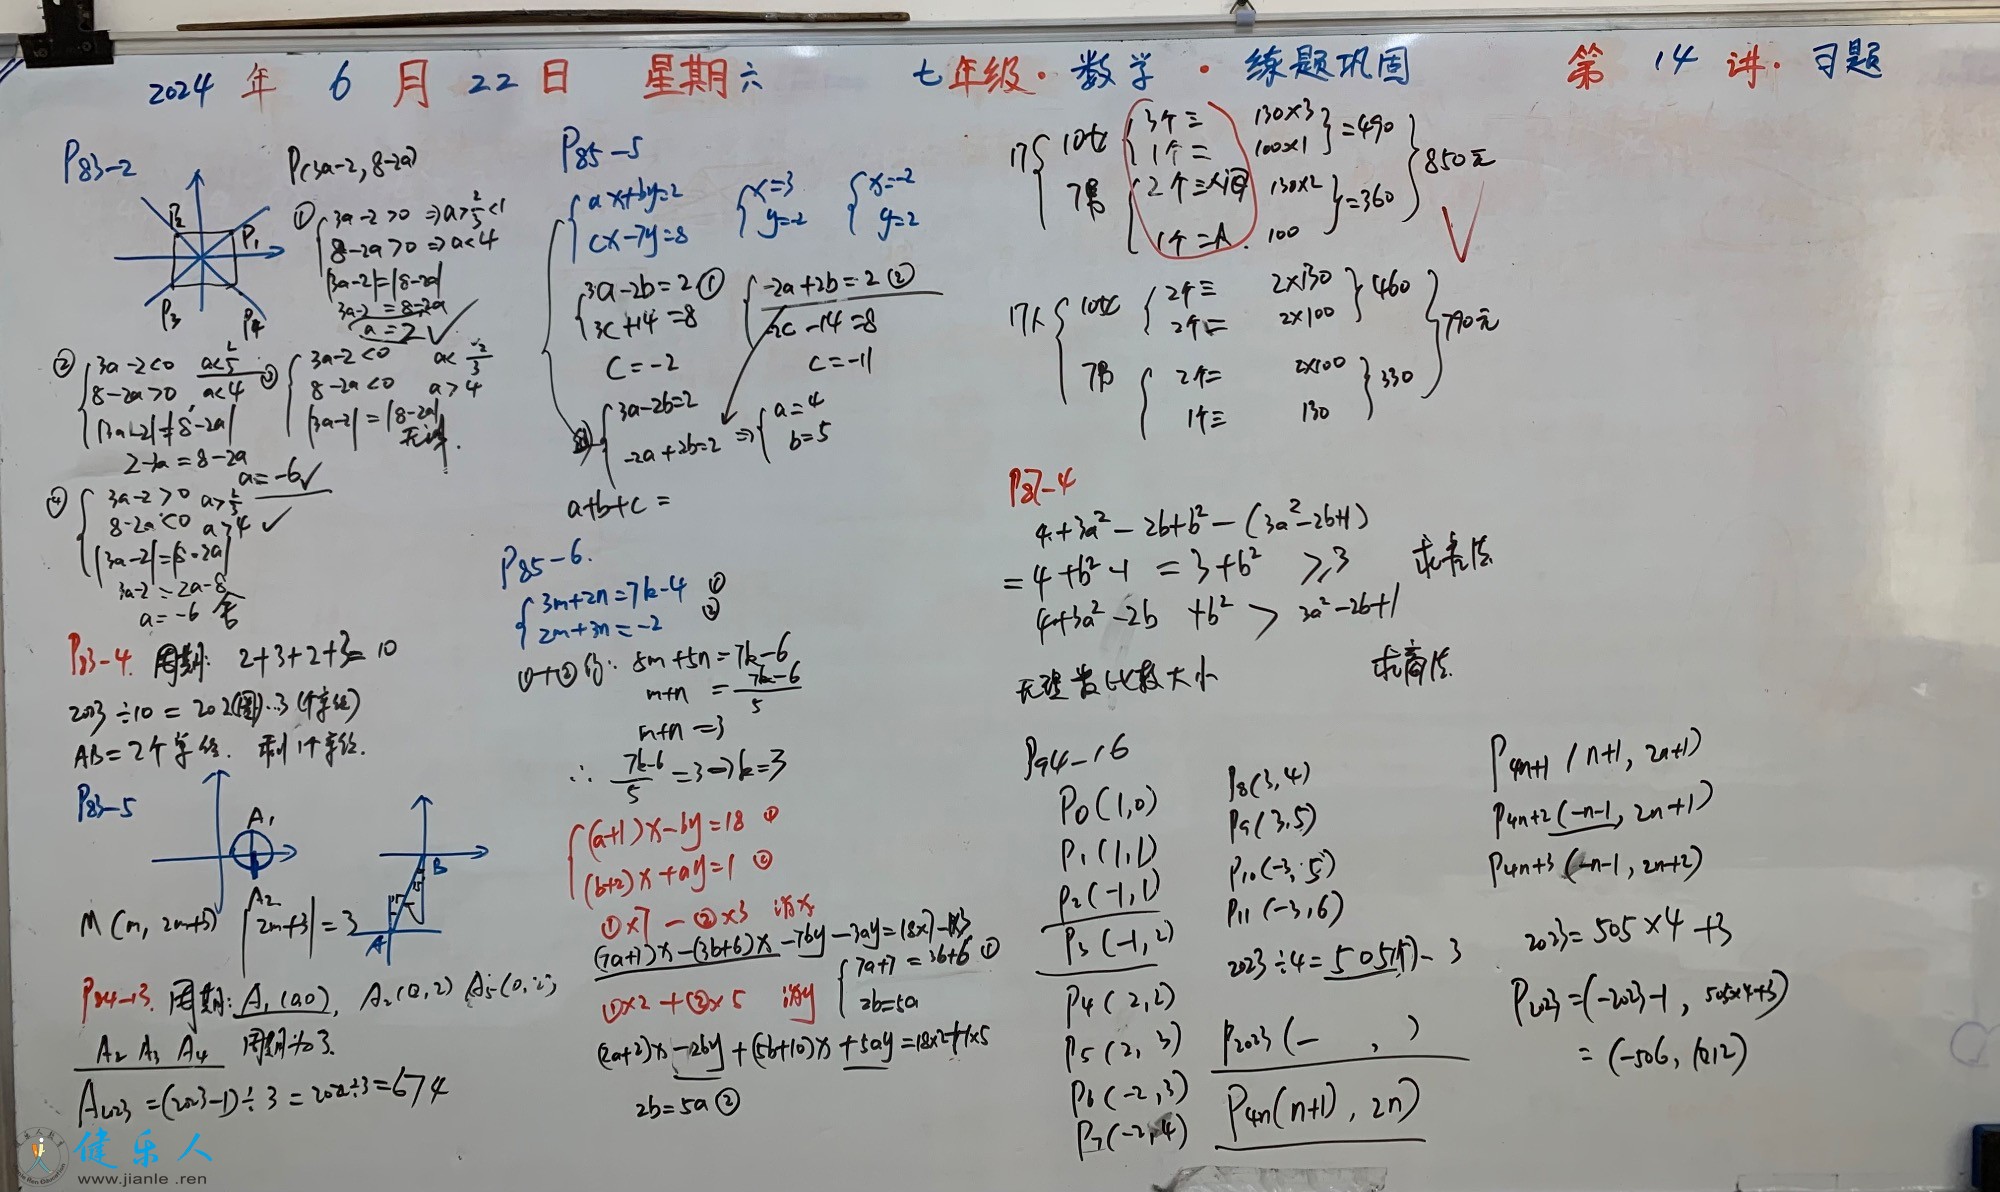 2024 年 6 月 22 日 星期六 七年级·数学·练题巩固 第 14 讲·习题
P83-2
P(3a-2, 8-2a)
P2
P1
P3
P4
①
3a-2>0 ⇒a>
8-2a>0 ⇒a<4
|3a-2|=|8-2a|
3a-2=8-2a
a=2✓
②
3a-2<0
8-2a>0 a<4
2-3a=8-2a
a=-6✓
③
3a-2<0
8-2a<0 a>4
|3a-2|=|8-2a|
④
3a-2>0
8-2a<0 a>4 ✓
|3a-2|=|8-2a|
3a-2=2a-8
a=-6 舍
P83-4. 周期: 2+3+2+3=10
2023÷10=202(周)…3(个单位)
AB=2个单位. 剩1个单位.
P83-5
A1
A2
B
A
M(m, 2m+3) |2m+3|=3
P84-13. 周期: A1(a,0), A2(0,2)
A2 A3 A4 周期为3.
A2023=(2023-1)÷3=2022÷3=674
P85-5
ax+by=2
cx-7y=8
x=3
y=-2
x=-2
y=2
3a-2b=2①
3c+14=8
c=-2
-2a+2b=2②
-2c-14=8
c=-11
3a-2b=2
-2a+2b=2
⇒
a=4
b=5
a+b+c=
P85-6.
3m+2n=7k-4 ①
2m+3n=-2 ②
①+②得: 5m+5n=7k-6
m+n =7k-6/5
m+n =3
∴ 7k-6/5=3⇒k=3
(a+1)x-by=18 ①
(b+2)x+ay=1 ②
①×7-②×3 消x
(7a+7)x-(3b+6)x-7by-3ay=18×7-1×3
7a+7=3b+6 ①
2b=5a
①×2+②×5 消y
(2a+2)x-2by+(5b+10)x+5ay=18×2+1×5
2b=5a②
17
10女
3个三 130×3
1个二 100×1
=490
7男
2个三人间 130×2
1个二人. 100
=360
850元
17人
10女
2个三 2×130
2个二 2×100
460
7男
2个二 2×100
1个三 130
330
790元
P87-4
4+3a²-2b+b²-(3a²-2b+1)
=4+b²-1 =3+b² ≥3 求差法
4+3a²-2b +b² > 3a²-2b+1
无理数比较大小 求商法.
P94-16
P0(1,0)
P1(1,1)
P2(-1,1)
P3(-1,2)
P4(2,2)
P5(2,3)
P6(-2,3)
P7(-2,4)
P8(3,4)
P9(3,5)
P10(-3,5)
P11(-3,6)
2023÷4=505(周)…3
P2023(- , )
P4n(n+1), 2n)
P4n+1(n+1, 2n+1)
P4n+2(-n-1, 2n+1)
P4n+3(-n-1, 2n+2)
2023=505×4+3
P2023=(-2023-1, 505×4+3)
=(-506, 1012)
健乐人
www.jianle.ren